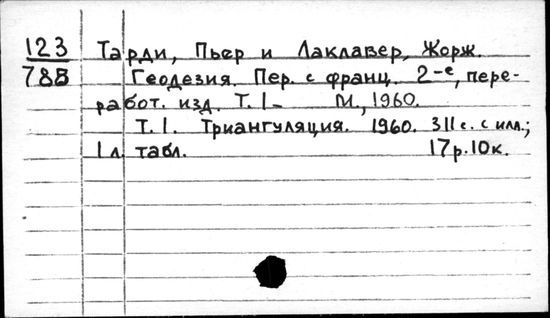 123 Тарди, Пьер и Лаклавер, Жорж.
788 Геодезия. Пер. с франц. 2-е, пере-
работ. изд. Т. 1- М., 1960.
Т. 1. Триангуляция. 1960. 311 с. с илл.;
1 л. табл. 17 р. 10 к.